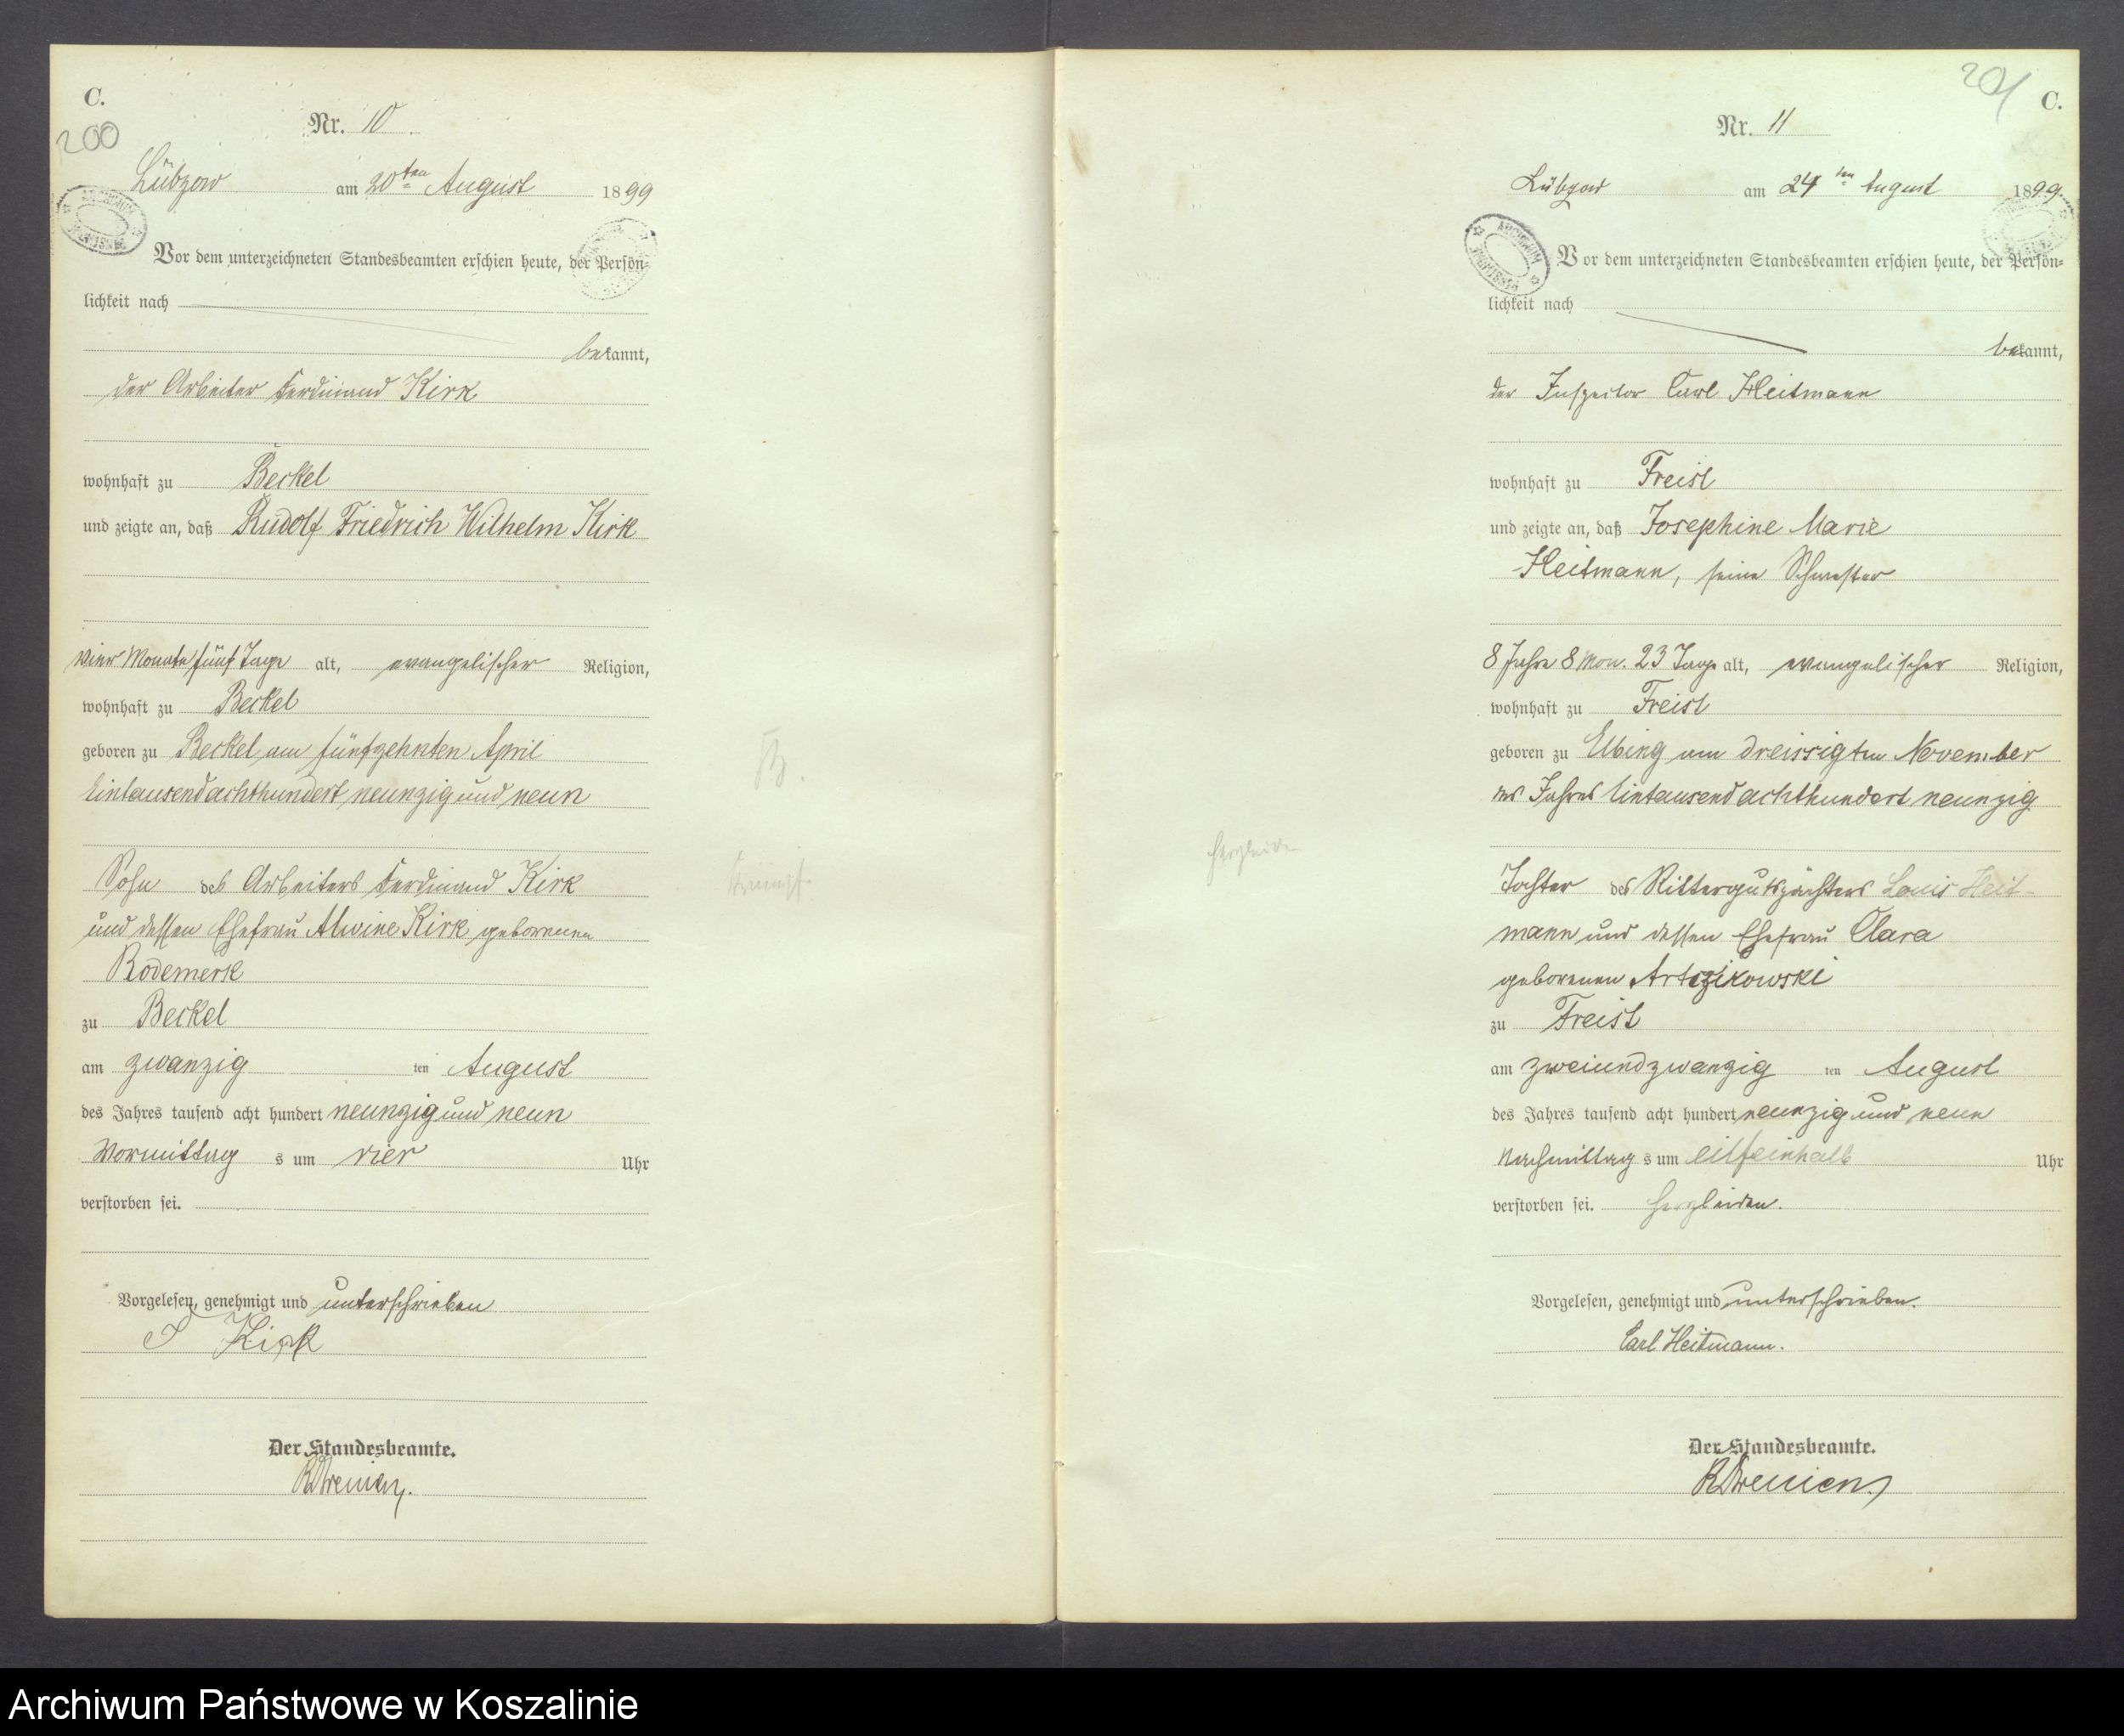 C.
200
Nr. 10.
Lübzow am 20ten August 1899
Vor dem unterzeichneten Standesbeamten erschien heute, der Persön-
lichkeit nach
bekannt,
der Arbeiter Ferdinand Kirk
wohnhaft zu Beckel
und zeigte an, daß Rudolf Friedrich Wilhelm Kirk
vier Monate fünf Tage alt, evangelischer Religion,
wohnhaft zu Beckel
geboren zu Beckel am fünfzehnten April
Eintausendachthundert neunzig und neun
Sohn des Arbeiters Ferdinand Kirk
und dessen Ehefrau Alwine Kirk geborenen
Rodemerk
zu Beckel
am zwanzig ten August
des Jahres tausend acht hundert neunzig und neun
Vormittag s um vier Uhr
verstorben sei.
Vorgelesen, genehmigt und unterschrieben
F Kirk
Der Standesbeamte.
201
C.
Nr. 11
Lübzow am 24ten August 1899.
Vor dem unterzeichneten Standesbeamten erschien heute, der Persön-
lichkeit nach
bekannt,
der Inspector Carl Heitmann
wohnhaft zu Freist
und zeigte an, daß Josephine Marie
Heitmann, seine Schwester
8 Jahre 8 Mon. 23 Tage alt, evangelischer Religion,
wohnhaft zu Freist
geboren zu Elbing am dreissigten November
des Jahres Eintausend achthundert neunzig
Herzleiden
Tochter des Rittergutspächters Louis Heit-
mann und dessen Ehefrau Clara
geborenen
zu Freist
am zweiundzwanzig ten August
des Jahres tausend acht hundert neunzig und neun
Nachmittag s um eilfeinhalb Uhr
verstorben sei. Herzleiden.
Vorgelesen, genehmigt und unterschrieben.
Carl Heitmann.
Der Standesbeamte.
Archiwum Państwowe w Koszalinie